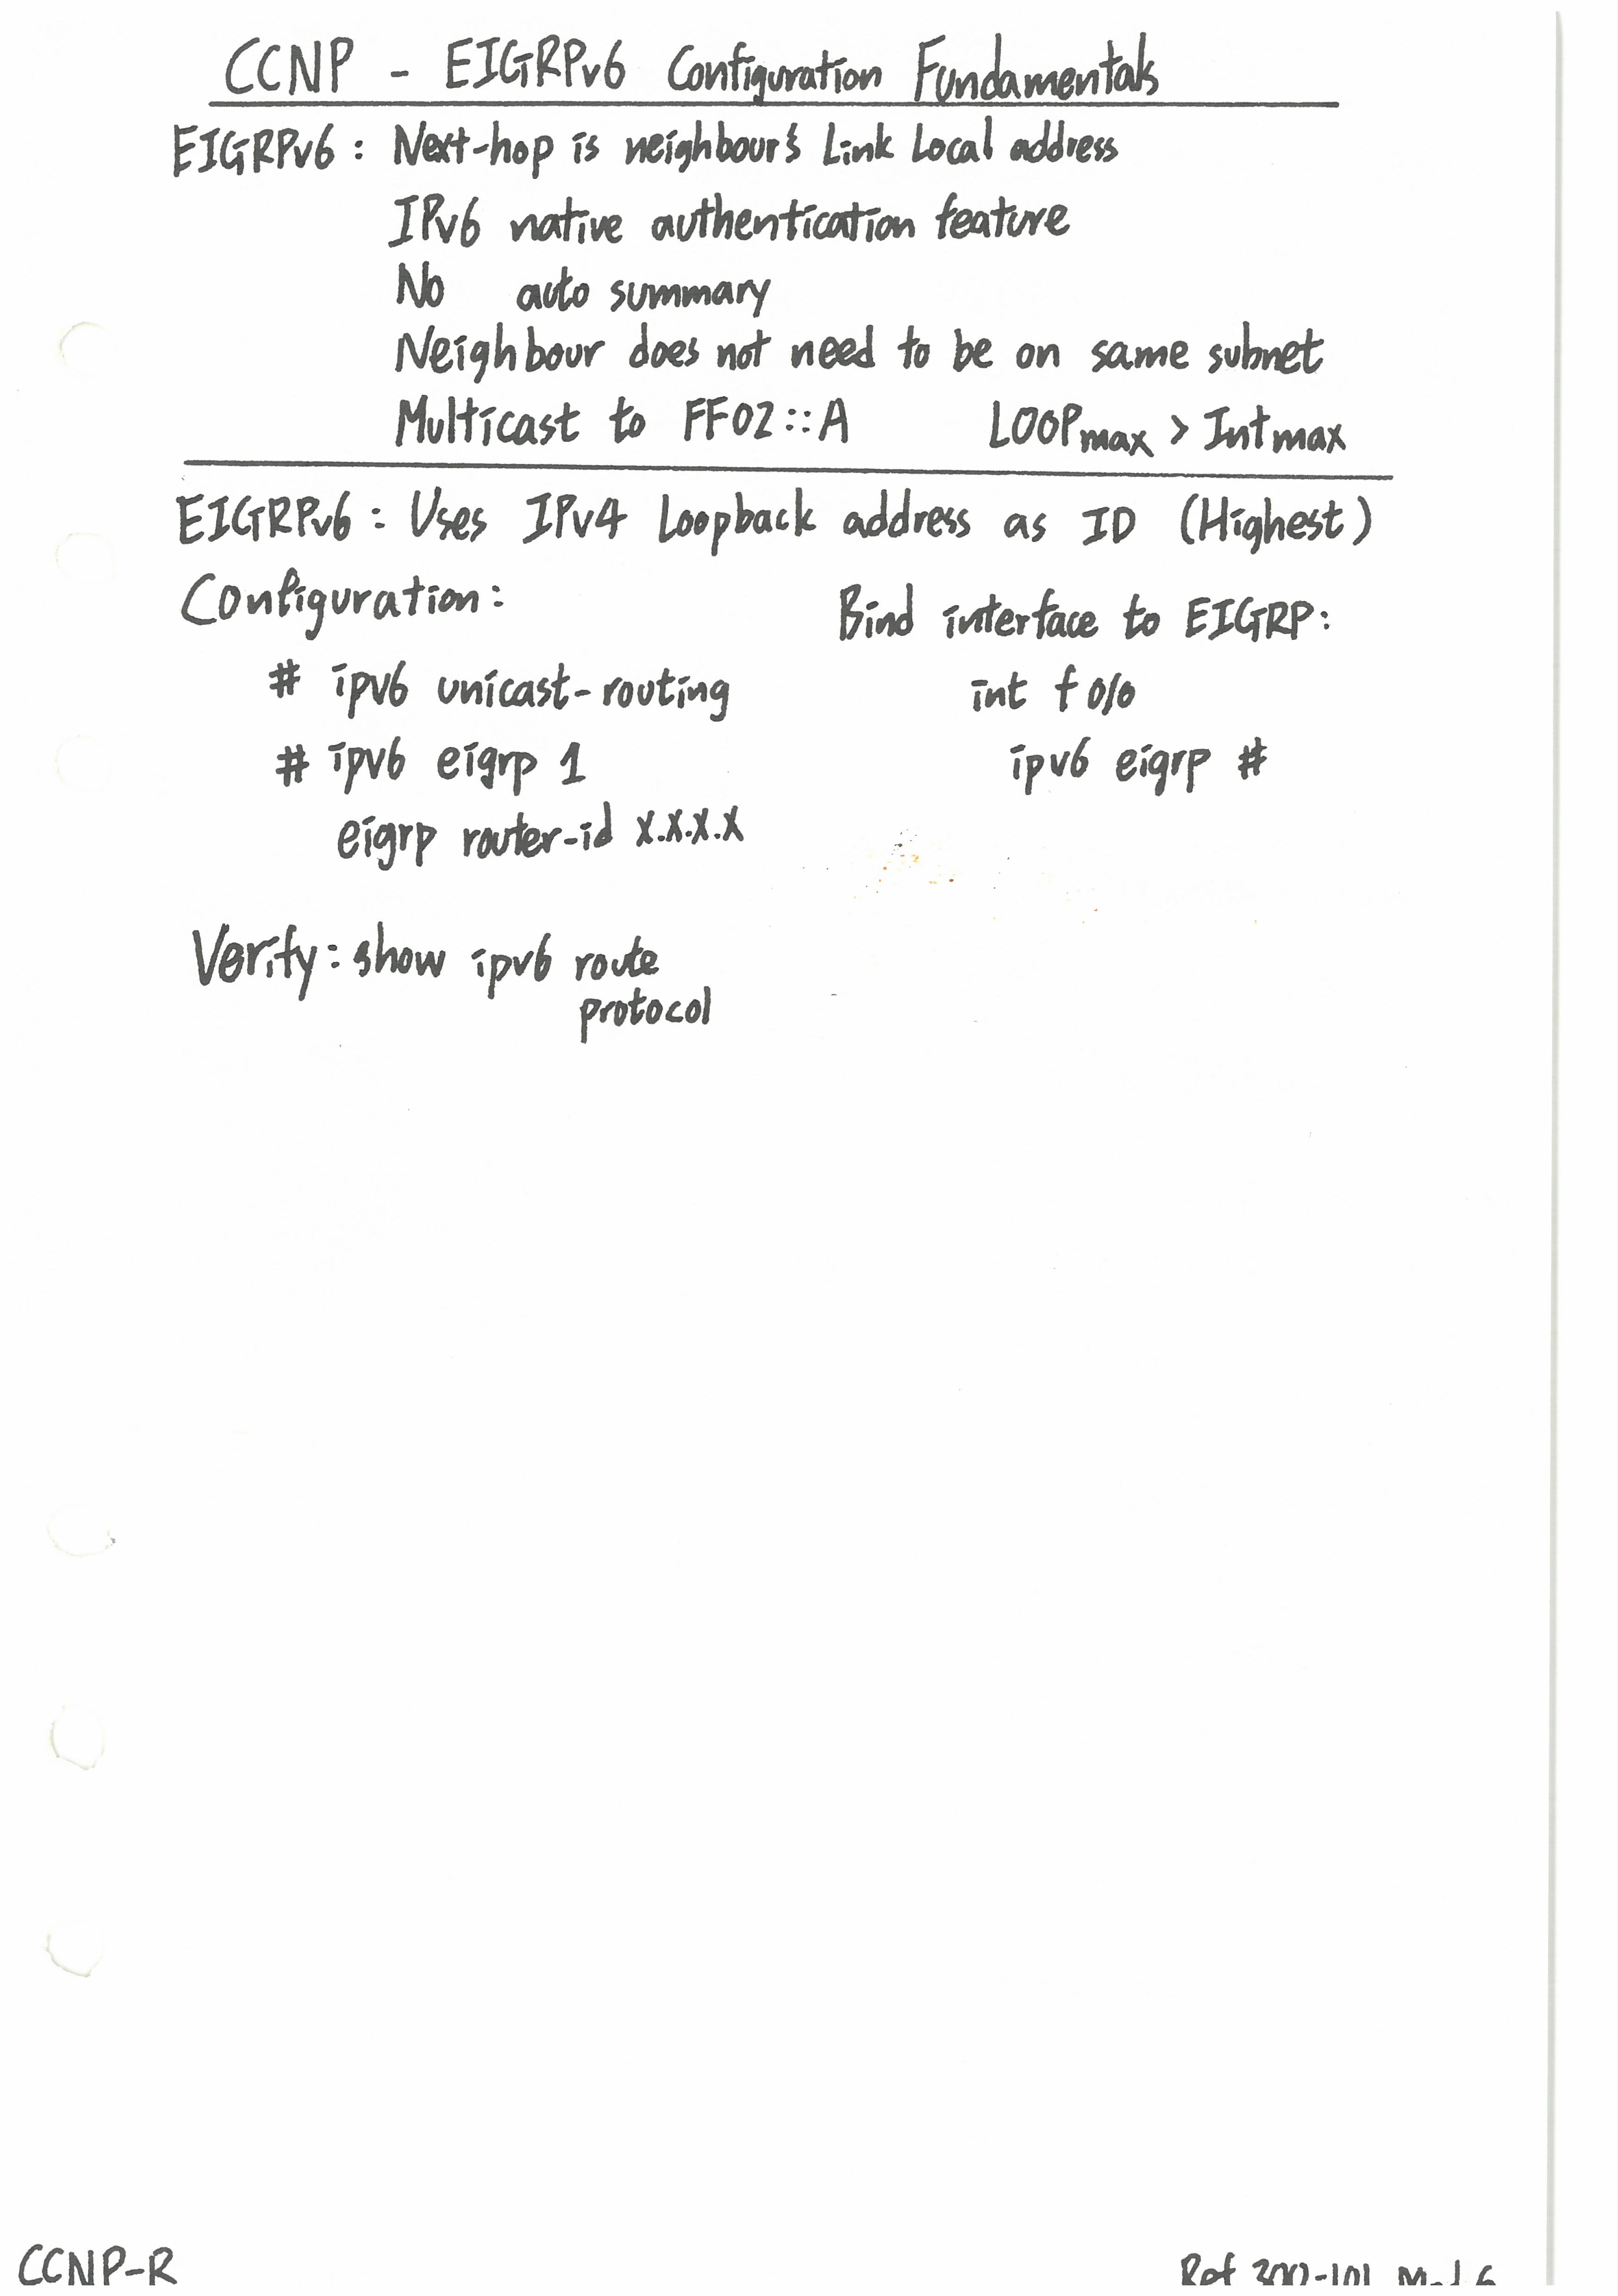 CCNP - EIGRPv6 Configuration Fundamentals
EIGRPv6 : Next-hop is neighbour's Link Local address
IPv6 native authentication feature
No auto summary
Neighbour does not need to be on same subnet
Multicast to FF02::A LOOPmax > Intmax
EIGRPv6 : Uses IPv4 Loopback address as ID (Highest)
Configuration:
# ipv6 unicast-routing
# ipv6 eigrp 1
eigrp router-id X.X.X.X
Bind interface to EIGRP:
int f 0/0
ipv6 eigrp #
Verify: show ipv6 route
protocol
CCNP-R
Ref 300-101 Mod 6